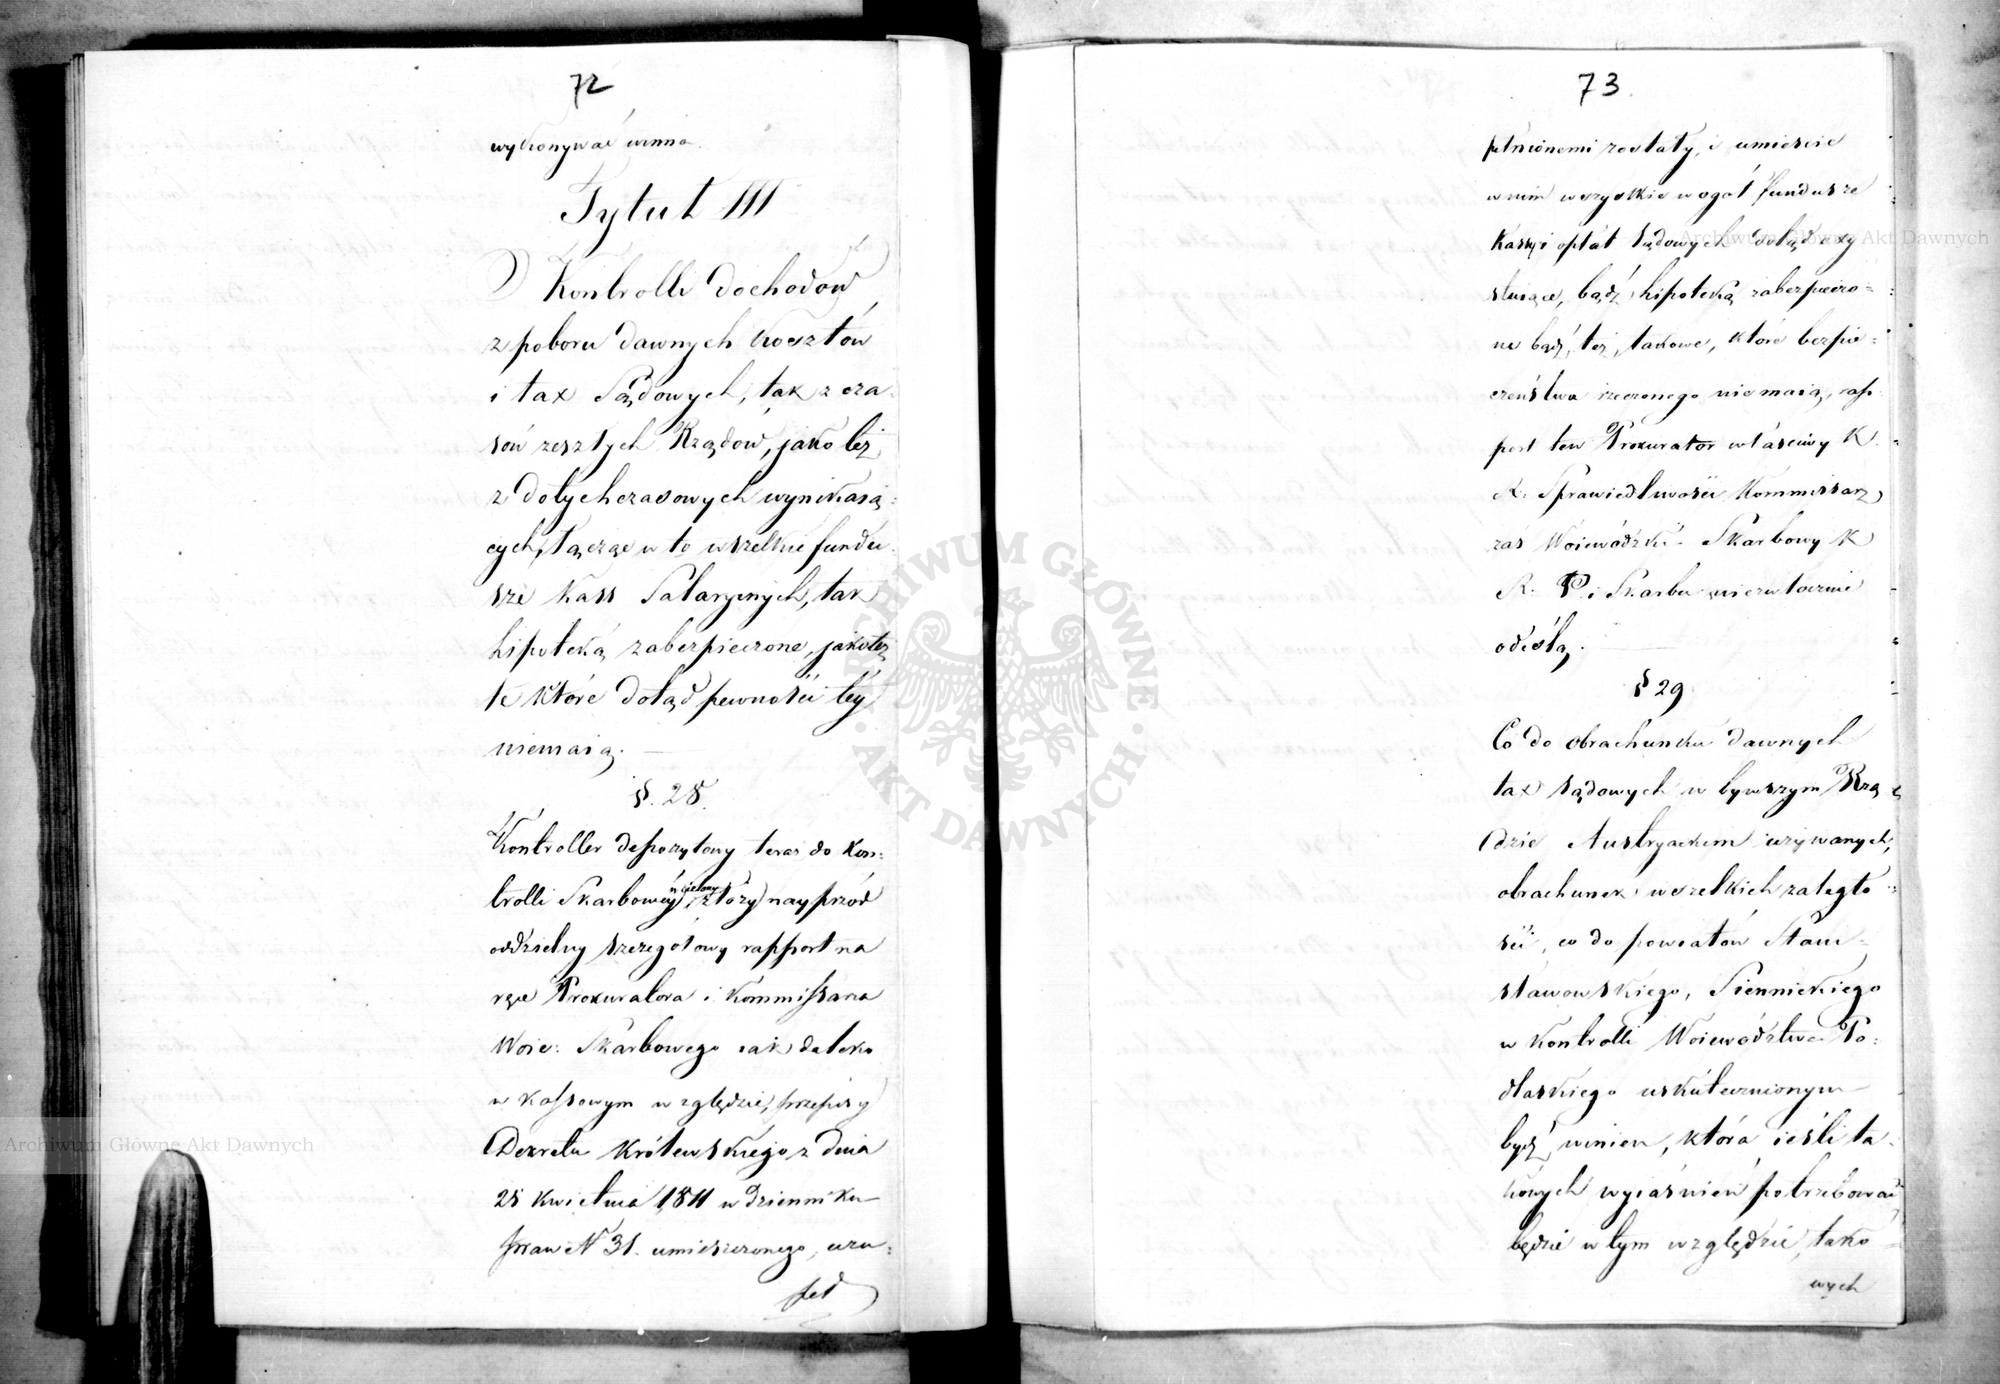 72
wykonywać winna.
Tytuł III
O Kontrolli dochodów
z poboru dawnych kosztów
i tax Sądowych, tak z cza-
sów zeszłych Rządów, jako też
z dotychczasowych wynikaią-
cych, łącząc w to wszelkie fundu-
sze kass Salaryinych, tak
hipoteką zabezpieczone, jakoteż
te które dotąd pewności tey
niemaią.
§. 28.
Kontroller depozytowy teraz do Kon-
trolli Skarbowéy wcielony, złoży nayprzód
oddzielny szczegółowy rapport na
ręce Prokuratora i Kommissarza
Woie: Skarbowego iak daleko
w kassowym względzie, przepisy
Dekretu Królewskiego z dnia
25 Kwietnia 1811 w dzienniku
praw N 31. umieszczonego, uzu-
peł
73.
pełnionemi zostały, i umieście
w nim wszystkie w ogół fundusze
Kassy i opłat Sądowych dotąd exy
stuiące, bądź hipoteką zabezpieczo-
ne bądź, też, takowe, które bezpie-
czeństwa rzeczonego nie maią, rap-
port ten Prokurator właściwy K.
R. Sprawiedliwości Kommissarz
zaś Woiewódzki Skarbowy K
R. P. i Skarbu niezwłocznie
odeślą.
§ 29
Co do obrachunku dawnych
tax sądowych w bywszym Rzą
dzie Austryackim używanych,
obrachunek wszelkich zaległo-
ści, co do powiatów Stani-
sławowskiego, Siennickiego
w Kontrolli Woiewództwa Po-
dlaskiego uskutecznionym
bydź winien, która ieśli ta-
kowych wyiaśnień potrzebować
będzie w tym względzie, tako
wych
Archiwum Główne Akt Dawnych
Archiwum Główne Akt Dawnych
ARCHIWUM GŁÓWNE · AKT DAWNYCH ·